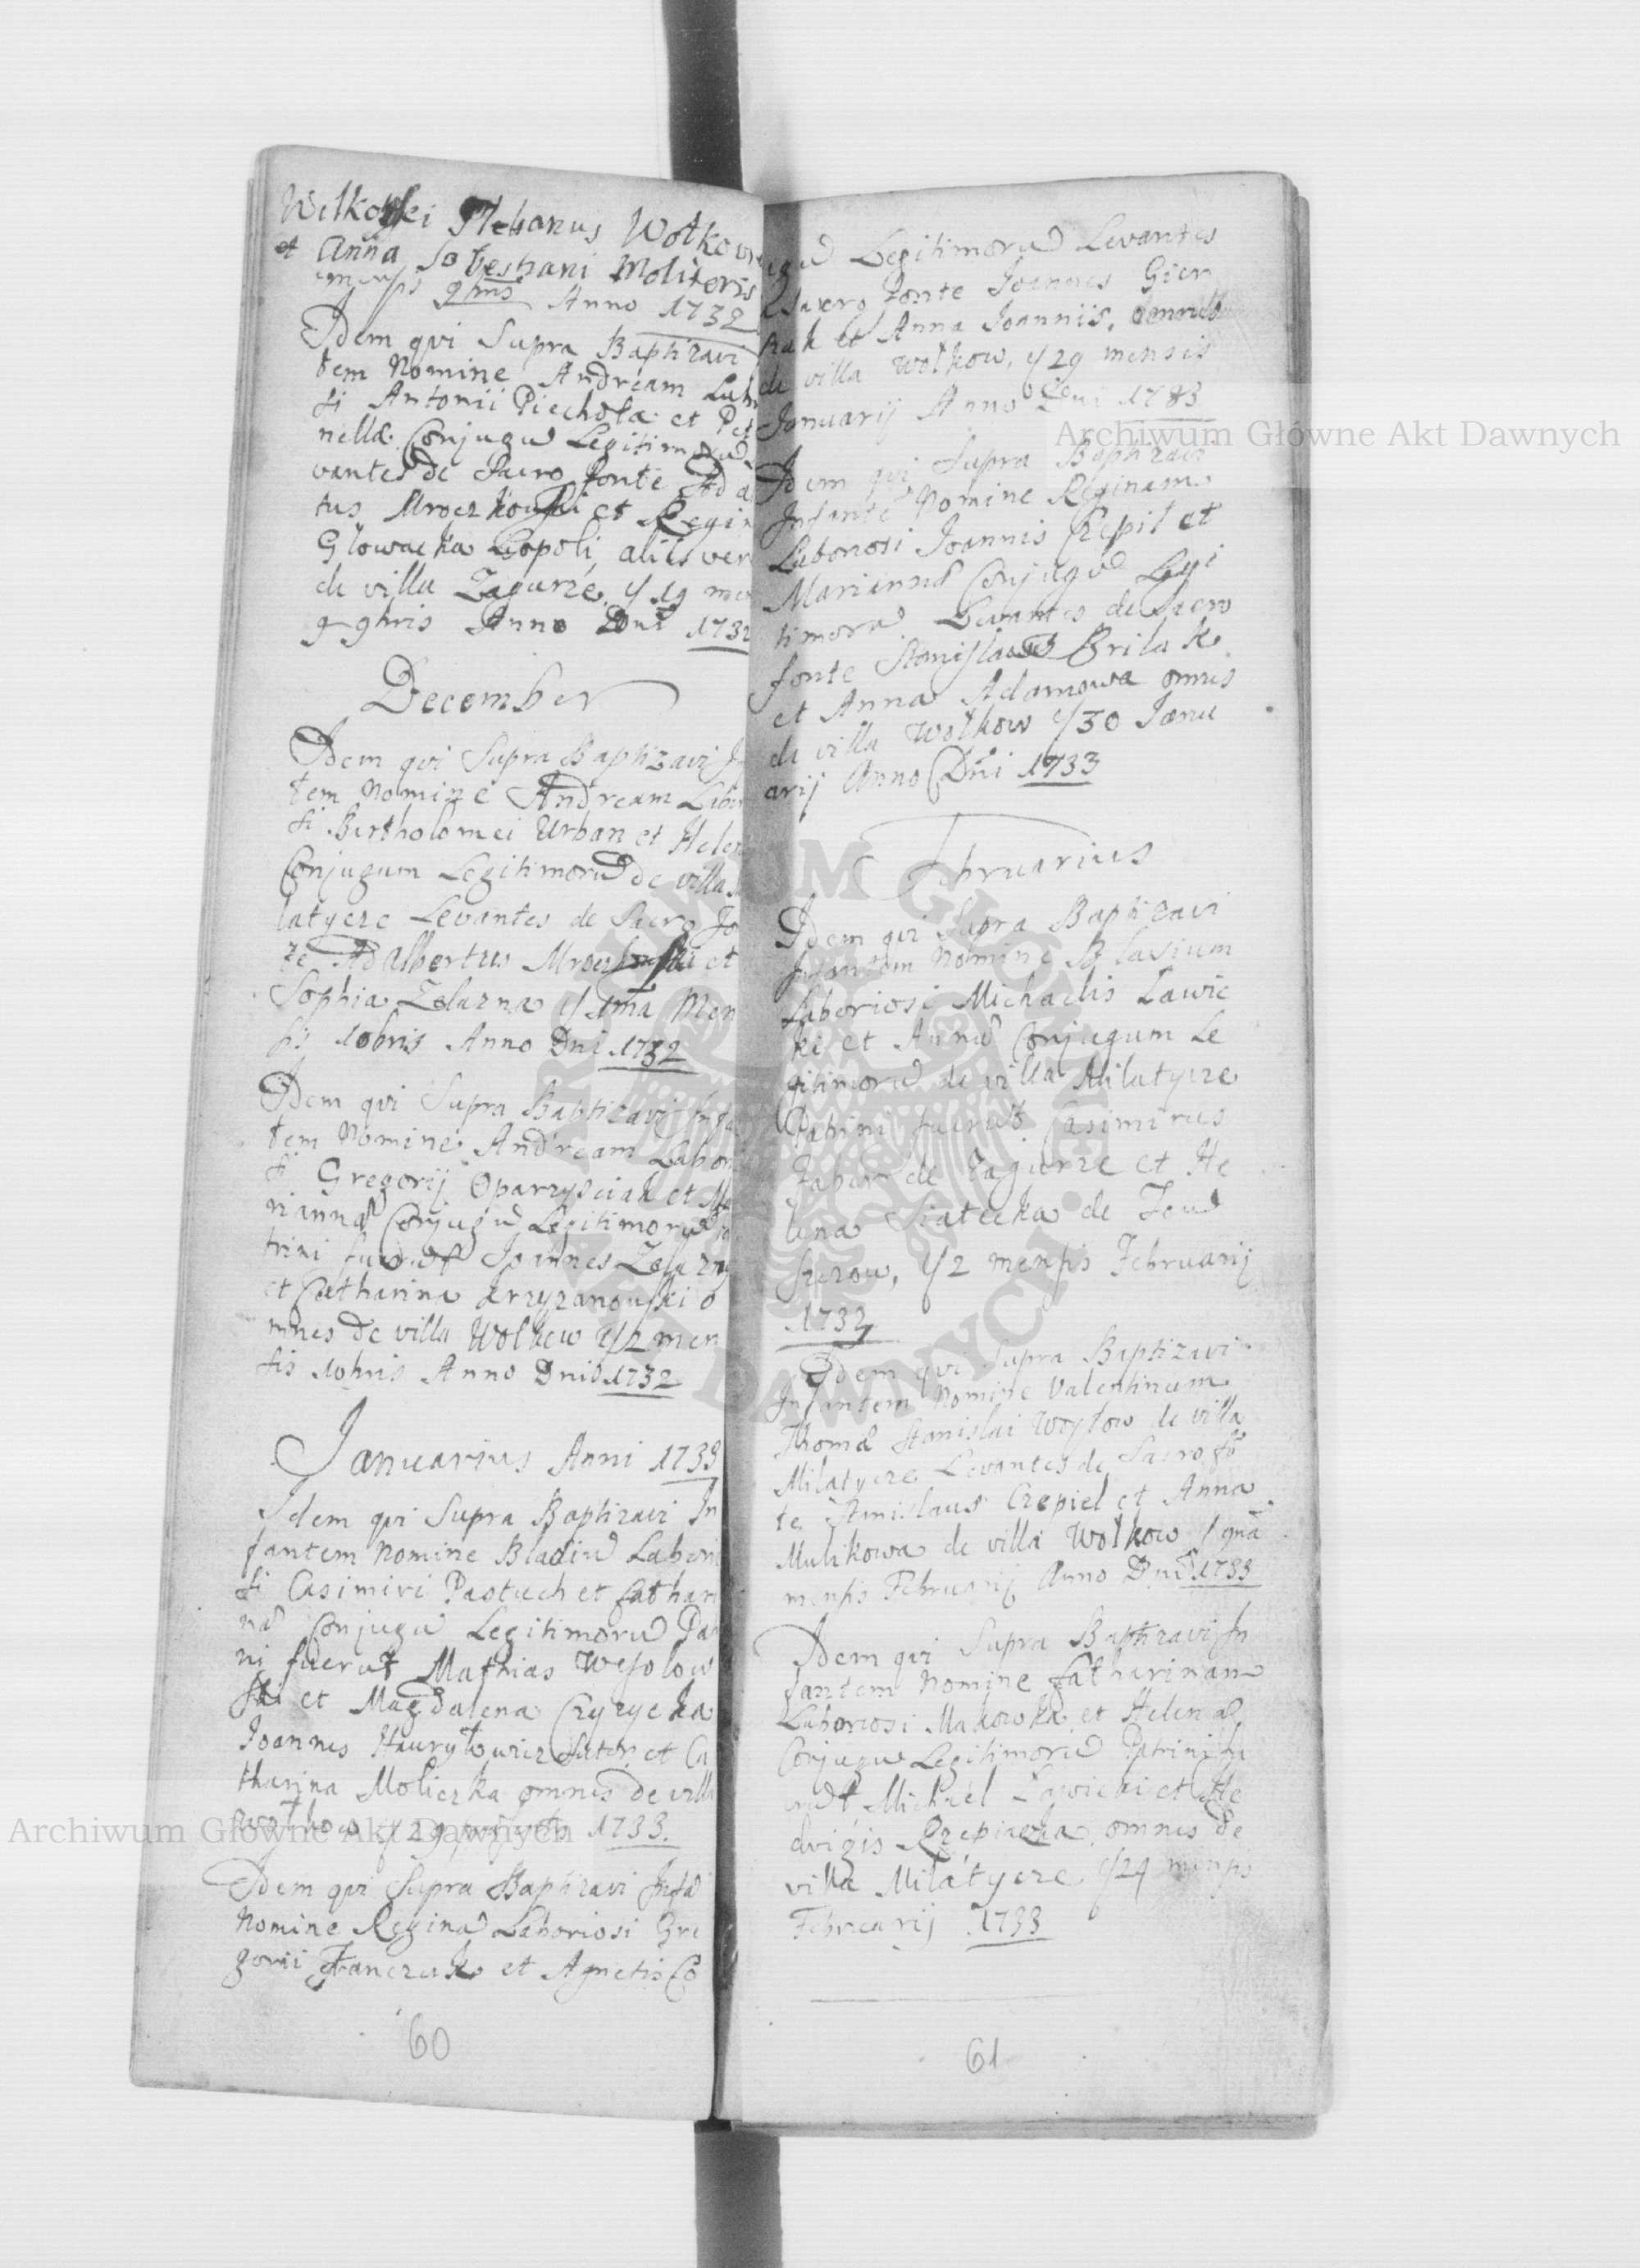 Stephanus Wolkow
et Anna Sobestiani Molitoris
9bris Anno 1732
Idem qvi Supra Baptizavi
tem Nomine Andream Lab
si Antonii Piechota et Pet
nellæ Conjugũ Legitimorũ
vantes de Sacro fonte Ad a
tus Mroczkouski et Regin
Głowacka Leopoli, aliis ver
de villa Zagurze, 19 men
9bris Anno Dni 1732
December
Idem qvi Supra Baptizavi
tem Nomine Andream Labo
si Bartholomei Urban et Helen
Conjugum Legitimorũ de villa
latycze Levantes de Sacro fo
te Adalbertus Mroczkouski et
Sophia Zelazna 1ma Men
sis 10bris Anno Dni 1732
Idem qvi Supra Baptizavi Infa
tem Nomine Andream Labori
si Gregorij Oparzysciak et Ma
riannæ Conjugũ Legitimorũ
trini fuerũt Joannes Zelazny
et Catharina Krzyzanouski o
mnes de villa Wolkow 2 men
sis 10bris Anno Dni 1732
Januarius Anni 1733
Idem qvi Supra Baptizavi In
fantem Nomine Bladiũ Labori
si Casimiri Pastuch et Cathari
næ Conjugũ Legitimorũ Pa
ni fuerũt Mathias Wesolow
ski et Magdalena Czyzycka
Joannes Hawryłowicz Sutor et Ca
tharina Moliczka omnes de villa
Wolkow 29 1733
Idem qvi Supra Baptizavi Infã
Nomine Reginã Laboriosi Gre
gorii Franczuk et Agnetis Co
60
Legitimorũ Levantes
Sacro fonte Joannes Gier
et Anna Joannis, omnes
de villa Wolkow, 29 mensis
Januarij Anno Dni 1733
Idem qvi Supra Baptizavi
Infantẽ Nomine Reginam
Laboriosi Joannis Czepil et
Mariannæ Conjugũ Legi
timorũ Levantes de Sacro
fonte Stanislaus Brilak
et Anna Adamowa omnes
de villa Wolkow 30 Janu
arij Anno Dni 1733
Februarius
Idem qvi Supra Baptizavi
Infantem Nomine Blasium
Laboriosi Michaelis Lawic
ki et Annæ Conjugum Le
gitimorũ de villa Milatycze
Patrini fuerũt Casimirus
Faber de Zagurze et He
lena Siatecka de
2 mensis Februarij
1733
Idem qvi Supra Baptizavi
Infantem Nomine Valentinum
Thomæ Stanislai Woytow de villa
Milatycze Levantes de Sacro fõ
te Stanislaus Czepiel et Anna
Mulikowa de villa Wolkow
mensis Februarij Anno Dni 1733
Idem qvi Supra Baptizavi In
fantem Nomine Catharinam
Laboriosi Makowka et Helenæ
Conjugũ Legitimorũ Patrini fu
erũt Michael Lawicki et He
dvigis Rzepiacka omnes de
villa Milatycze 24 mensis
Februarij 1733
61
Archiwum Główne Akt Dawnych
Archiwum Główne Akt Dawnych
ARCHIWUM GŁÓWNE AKT DAWNYCH